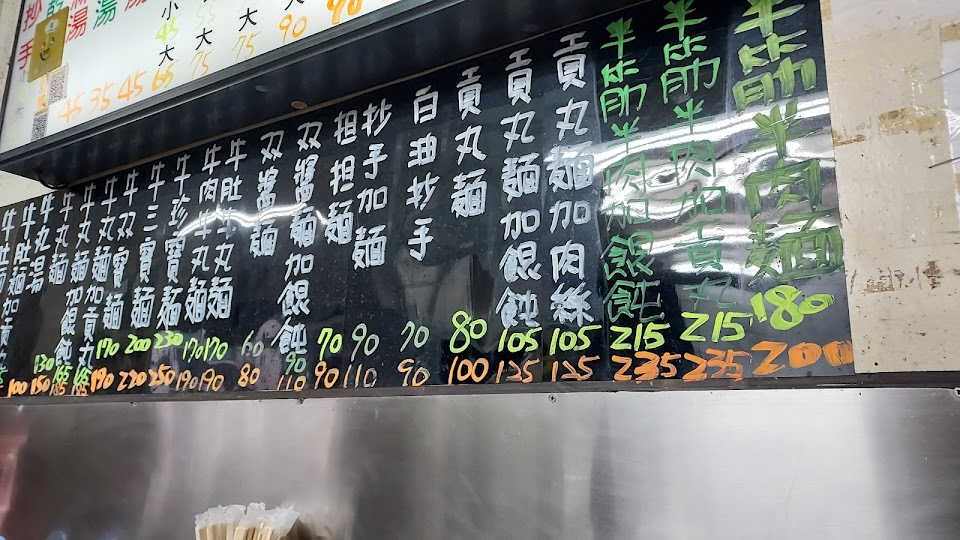 半筋半肉麵 180 200
半筋半肉加貢丸 215 235
半筋半肉加餛飩 215 235
貢丸麵加肉絲 105 125
貢丸麵加餛飩 105 125
貢丸麵 80 100
白油抄手 70 90
抄手加麵 90 110
担担麵 70 90
双醬麵加餛飩 90 110
双醬麵 60 80
牛肚牛丸麵 170 190
牛肉牛丸麵 170 190
牛珍寶麵 230 250
牛三寶麵 200 220
牛双寶麵 170 190
牛丸麵加貢丸
牛丸麵加餛飩
牛丸麵 130 150
牛丸湯 100
牛肚麵
大 75 90
大 75
小 45 大 65
湯 45
湯 35
抄手